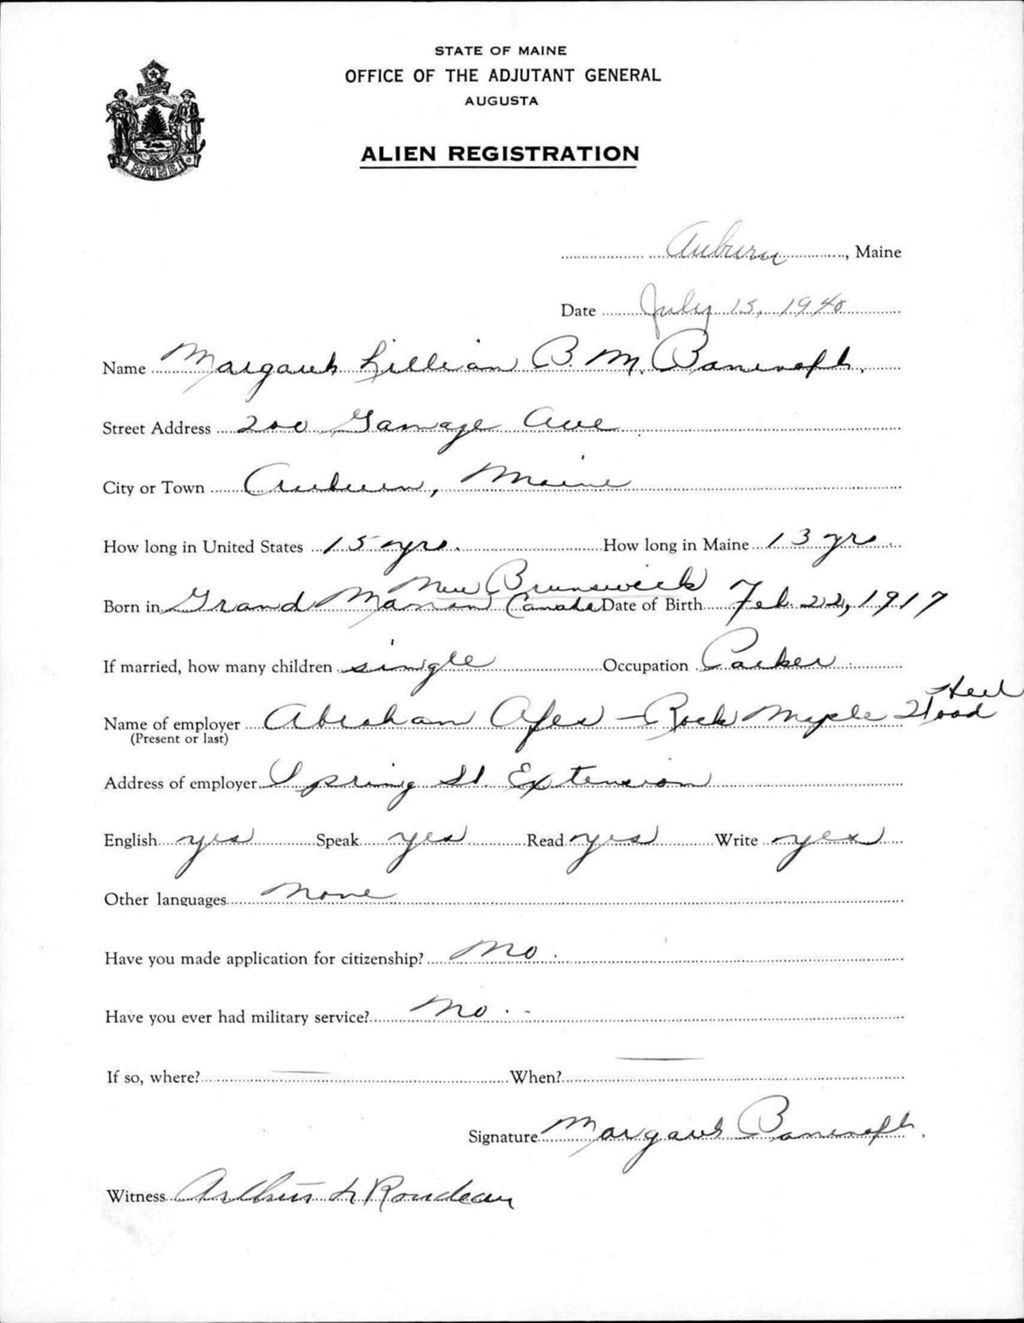 STATE OF MAINE
OFFICE OF THE ADJUTANT GENERAL
AUGUSTA
ALIEN REGISTRATION
MAINE
Auburn, Maine
Date July 15, 1940
Name Margaret Lillian B. M. Bancroft.
Street Address 200 Gamage Ave
City or Town Auburn, Maine
How long in United States 15 yrs. How long in Maine 13 yrs
New Brunswick
Born in Grand Manan Canada Date of Birth Feb. 22, 1917
If married, how many children single Occupation Packer
Heel
Name of employer Abraham - Rock Maple Wood
(Present or last)
Address of employer Spring St. Extension
English yes Speak yes Read yes Write yes
Other languages None
Have you made application for citizenship? No
Have you ever had military service? No
If so, where? When?
Signature Margaret Bancroft.
Witness Arthur L Rondeau